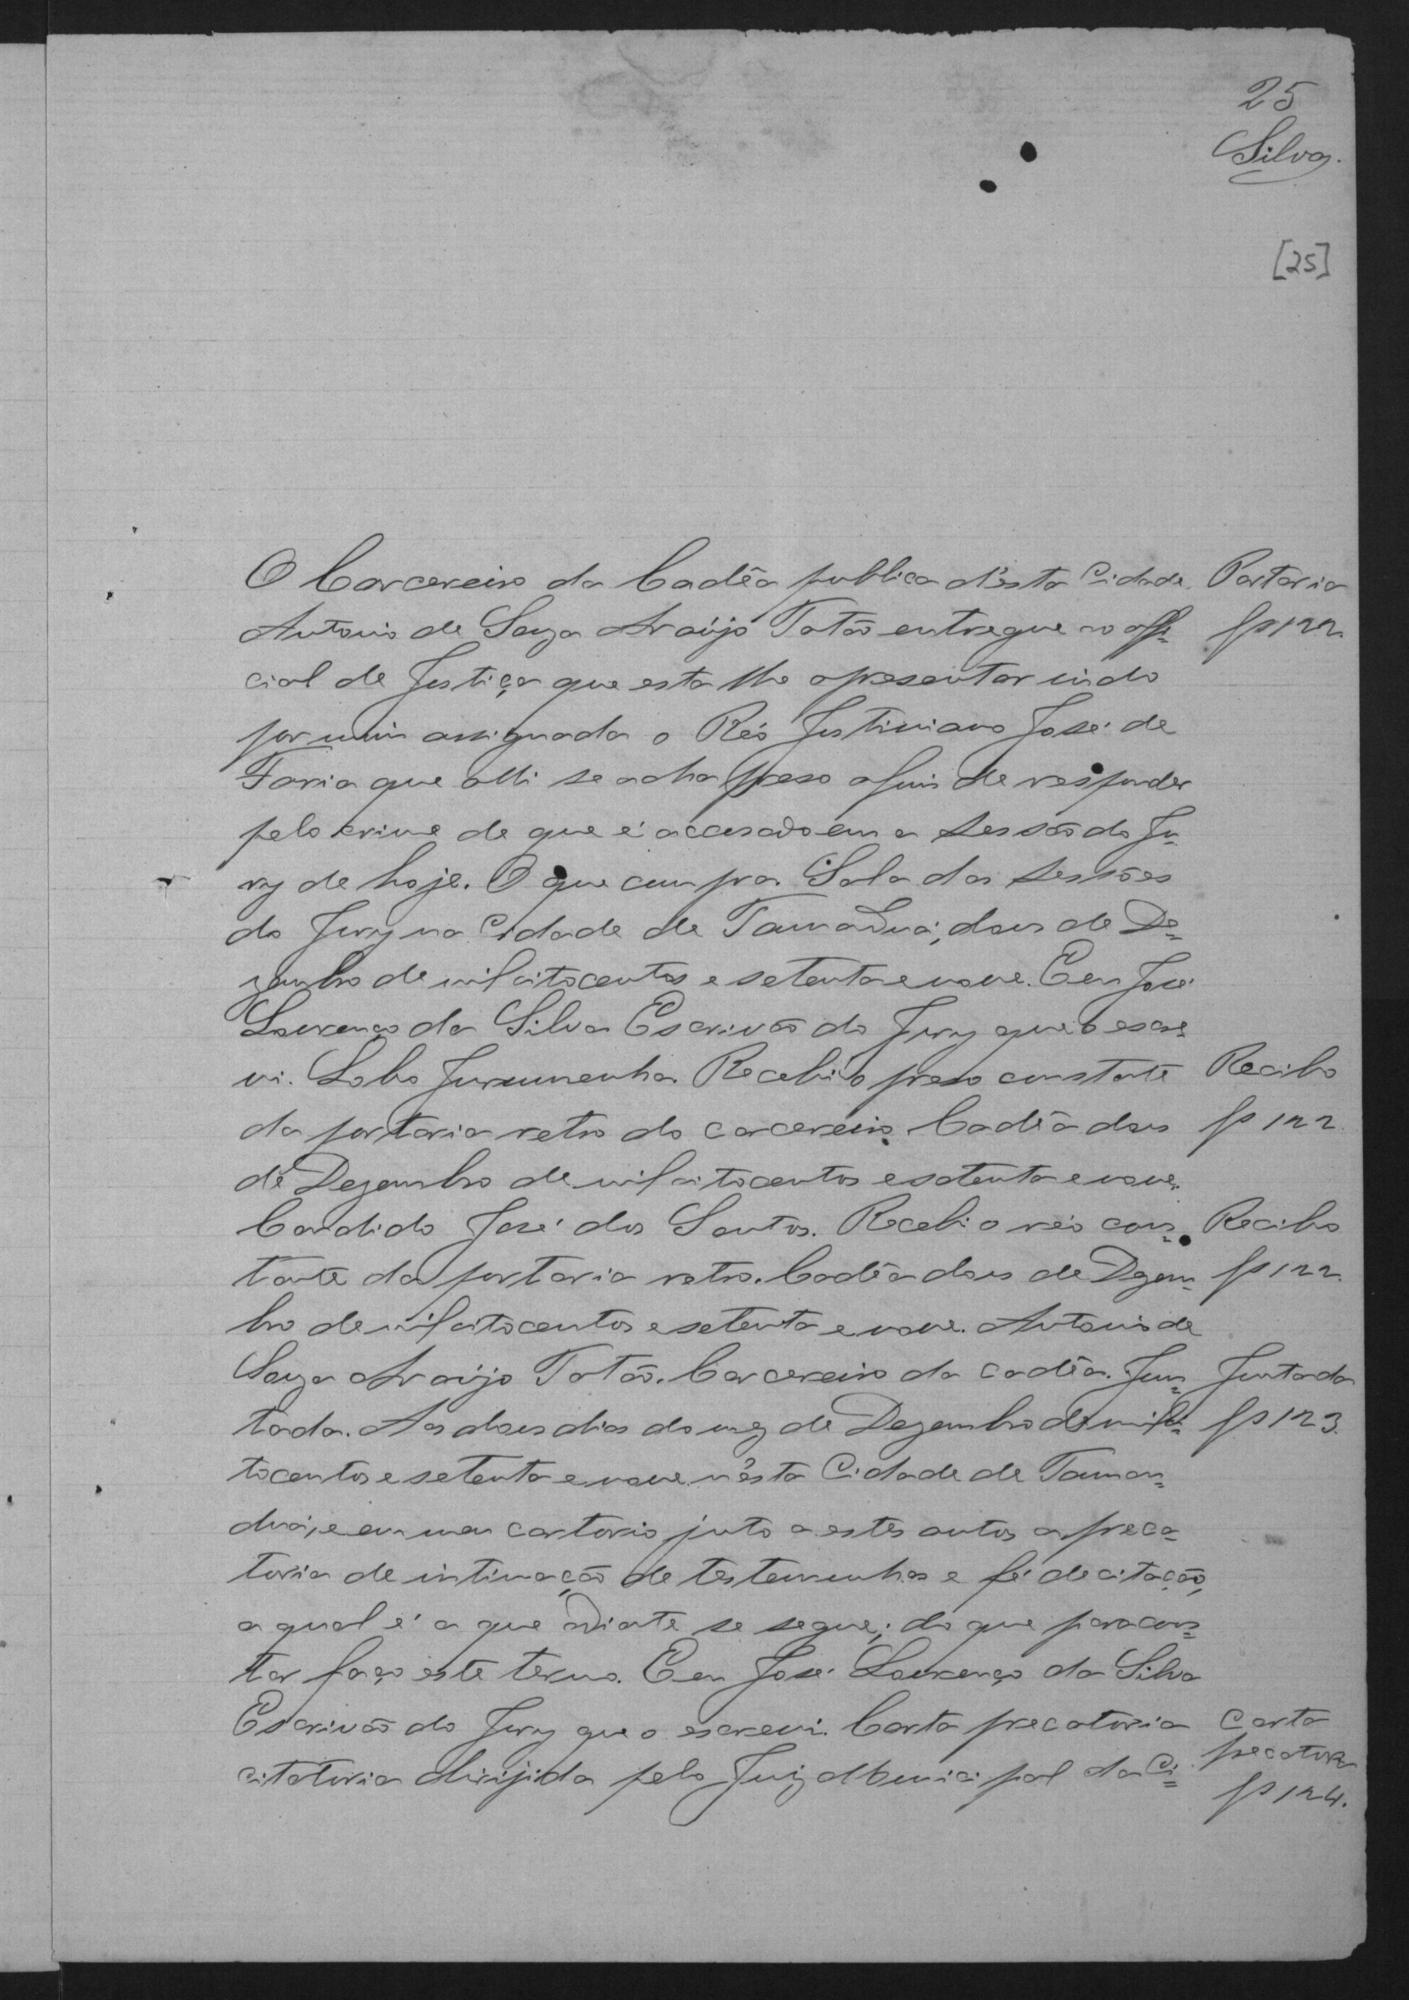 25
Silva.
[25]
O Carcereiro da Cadêa publica d'esta Cidade Portaria
Antonio de Souza Araújo Totão entregue ao offi= fs 122
cial de Justiça que esta lhe apresentar indo
por mim assignada o Réo Justiniano José de
Faria que alli se acha preso afim de responder
pelo crime de que é accusado em a sessão do Ju=
ry de hoje. O que cumpra. Sala das sessões
do Jury na Cidade de Tamanduá, dous de De=
zembro de mil oitocentos e setenta e nove. Eu José
Lourenço da Silva Escrivão do Jury que o escre=
vi. Lobo Jurumenha. Recebi o preso constante Recibo
da portaria retro do carcereiro. Cadêa dous fs 122
de Dezembro de mil oitocentos e setenta e nove.
Candido José dos Santos. Recebi o réo cons= Recibo
tante da portaria retro. Cadêa dous de Dezem= fs 122
bro de mil oitocentos e setenta e nove. Antonio de
Souza Araújo Totão. Carcereiro da cadêa. Jun= Juntada
tada. Aos dous dias do mez de Dezembro de mil oi= fs 123.
tocentos e setenta e nove n'ésta Cidade de Taman=
duá, e em meu cartorio junto a estes autos a preca=
toria de intimação de testemunhas e fé de citação,
a qual é a que adiante se segue; do que para cons=
tar faço este termo. Eu José Lourenço da Silva
Escrivão do Jury que o escrevi. Carta precatoria Carta
citatoria dirijida pelo Juiz Municipal da Ci= precatoria
fs 124.